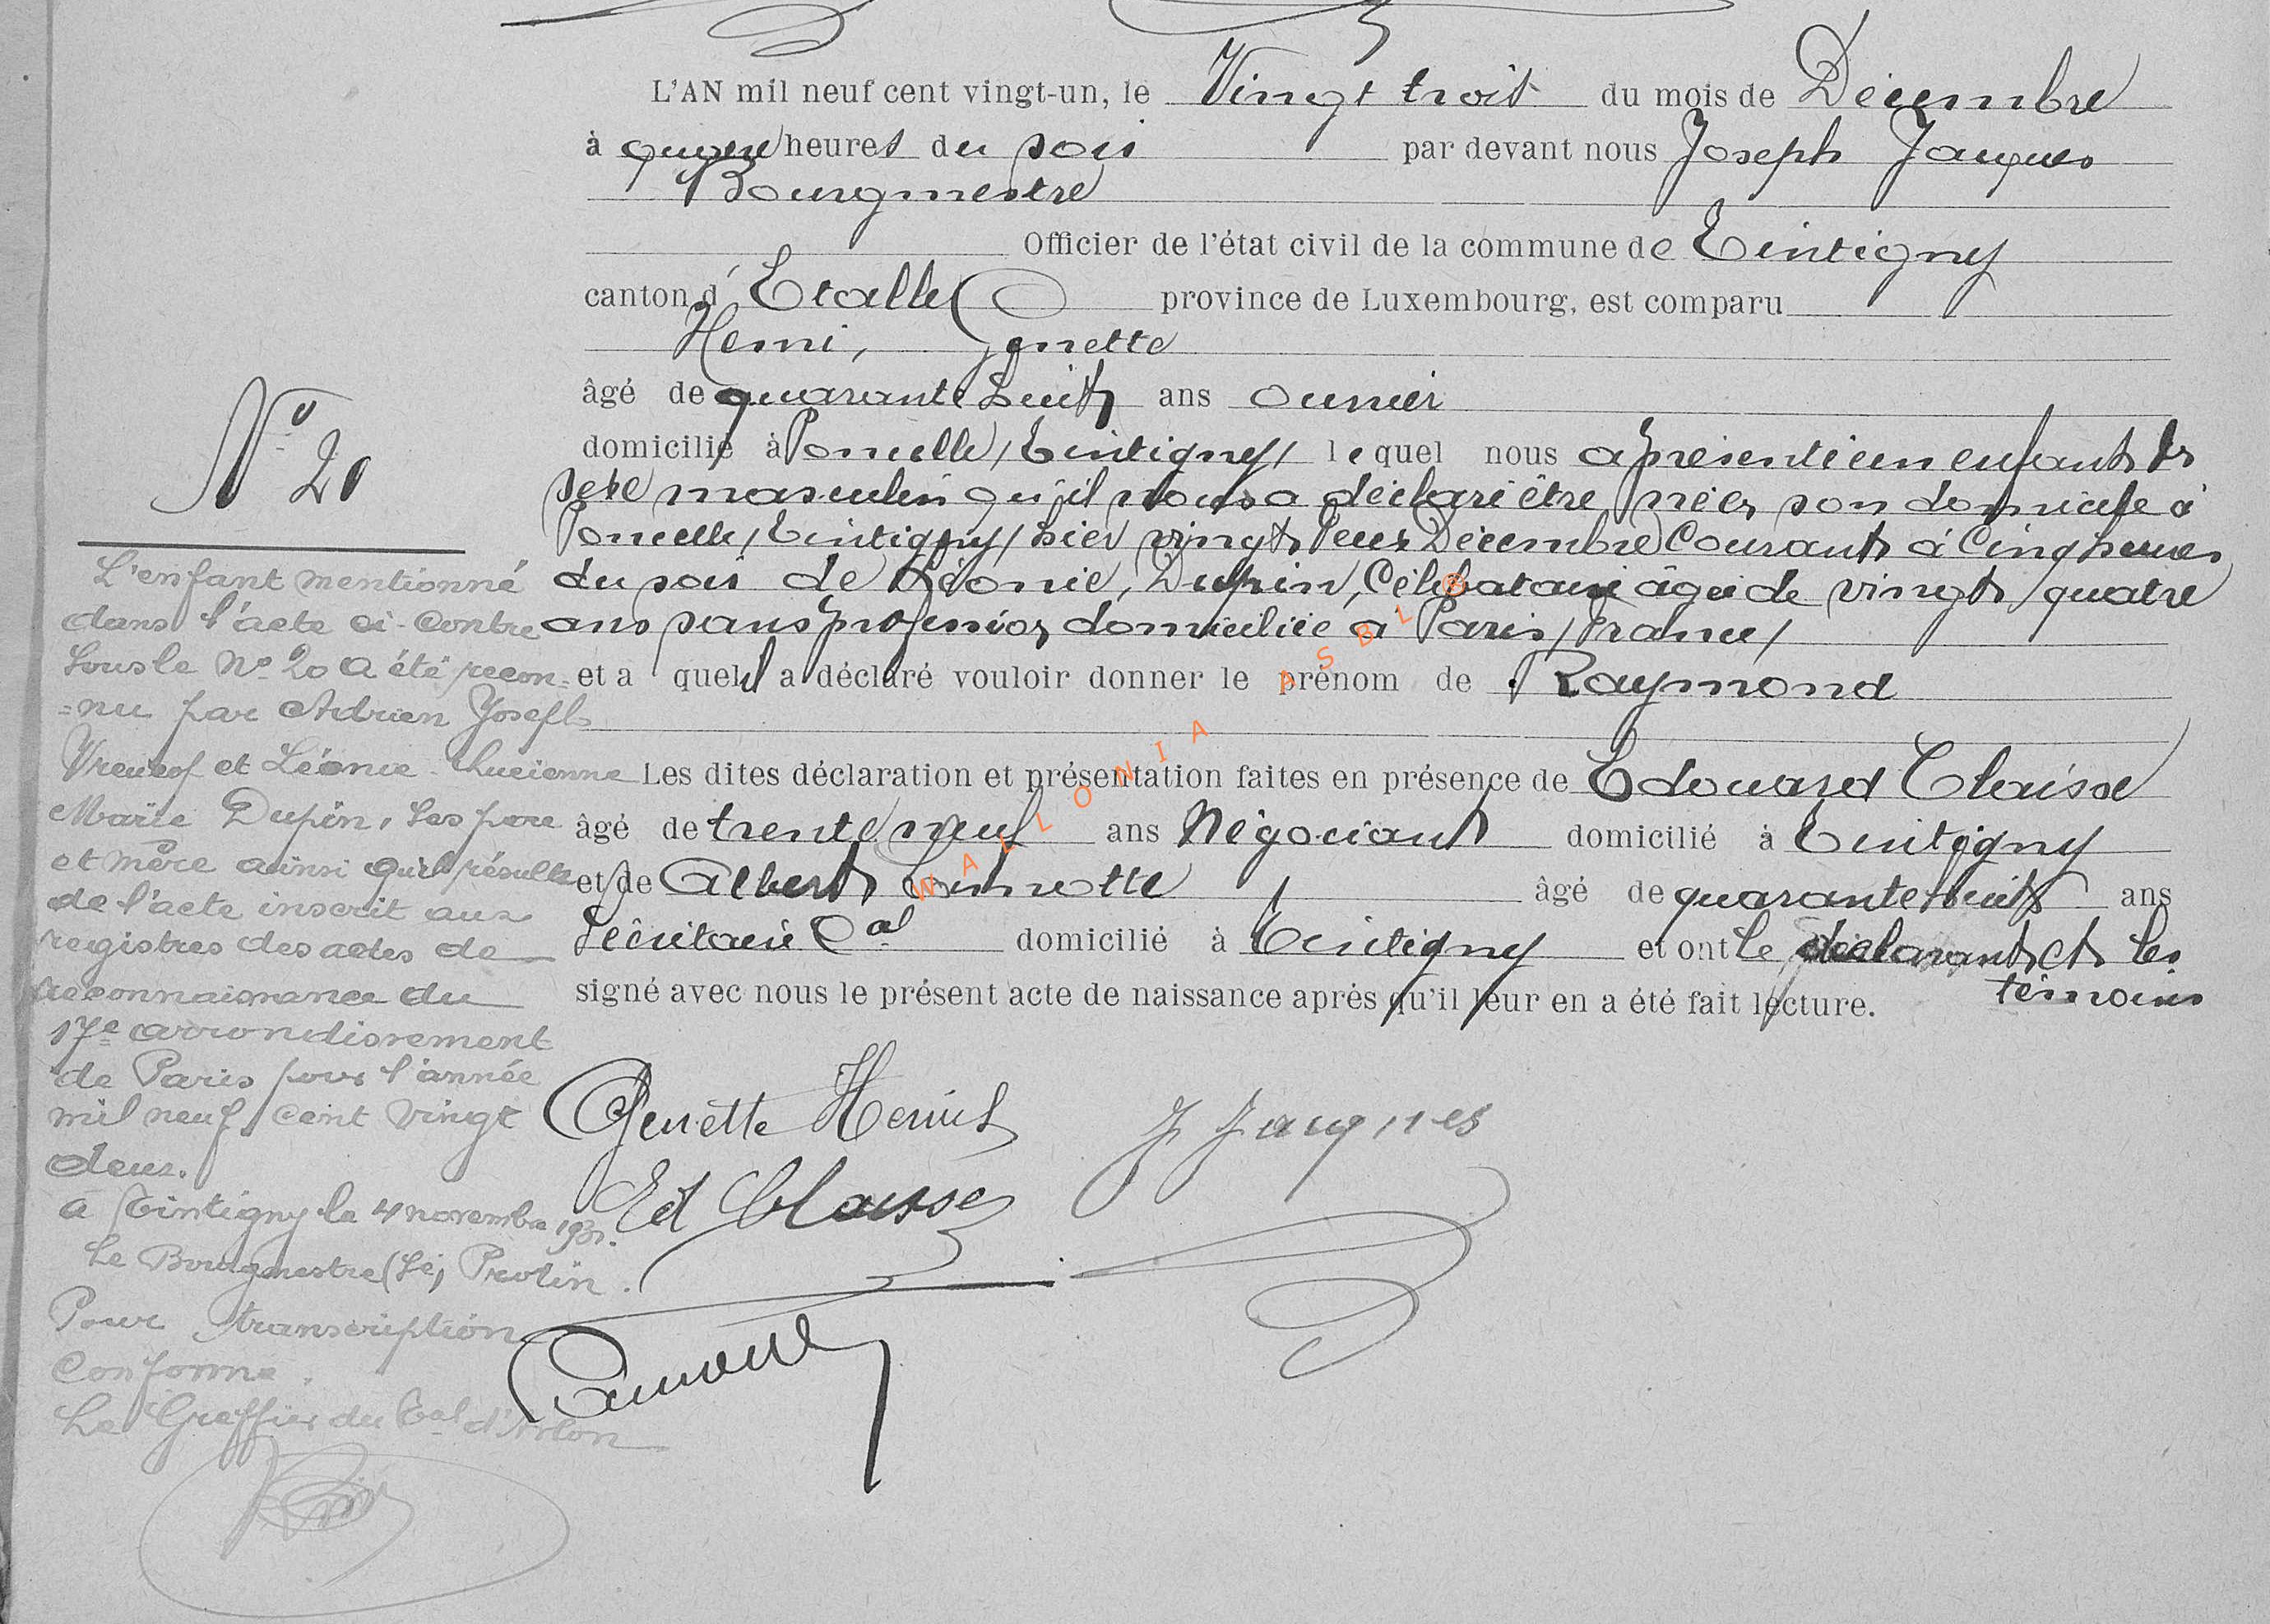 L'AN mil neuf cent vingt-un, le Vingt trois du mois de Décembre
à quatre heures du soir par devant nous Joseph Jacques
Bourgmestre
Officier de l'état civil de la commune de Tintigny
canton d'Etalle province de Luxembourg, est comparu
Henri, Genette
âgé de quarante huit ans ouvrier
domicilié à Poncelle / Tintigny / lequel nous a présenté un enfant du
sexe masculin qu'il nous a déclaré être né en son domicile à
Poncelle / Tintigny / hier vingt deux Décembre Courant à Cinq heures
du soir de Léonie, Dupin, Célibataire âgée de vingt quatre
ans sans profession domiciliée à Paris / France /
et a quel il a déclaré vouloir donner le prénom de Raymond
Les dites déclaration et présentation faites en présence de Edouard Claisse
âgé de trente neuf ans Négociant domicilié à Tintigny
et de Albert âgé de quarante huit ans
Secrétaire Cal domicilié à Tintigny et ont le déclarant et les
témoins
signé avec nous le présent acte de naissance après qu'il leur en a été fait lecture.
Genette Henri
J Jacques
Ed Claisse
N° 20
L'enfant mentionné
dans l'acte ci-contre
sous le N° 20 a été recon-
=nu par Adrien Joseph
et Léonie Lucienne
Marie Dupin, ses père
et mère ainsi qu'il résulte
de l'acte inscrit aux
registres des actes de
reconnaissance du
17e arrondissement
de Paris pour l'année
mil neuf cent vingt
deux.
A Tintigny le 4 novembre 1931.
Le Bourgmestre (Sé)
Pour transcription
Conforme.
Le Greffier du Tal d'Arlon
WALLONIA ASBL ®